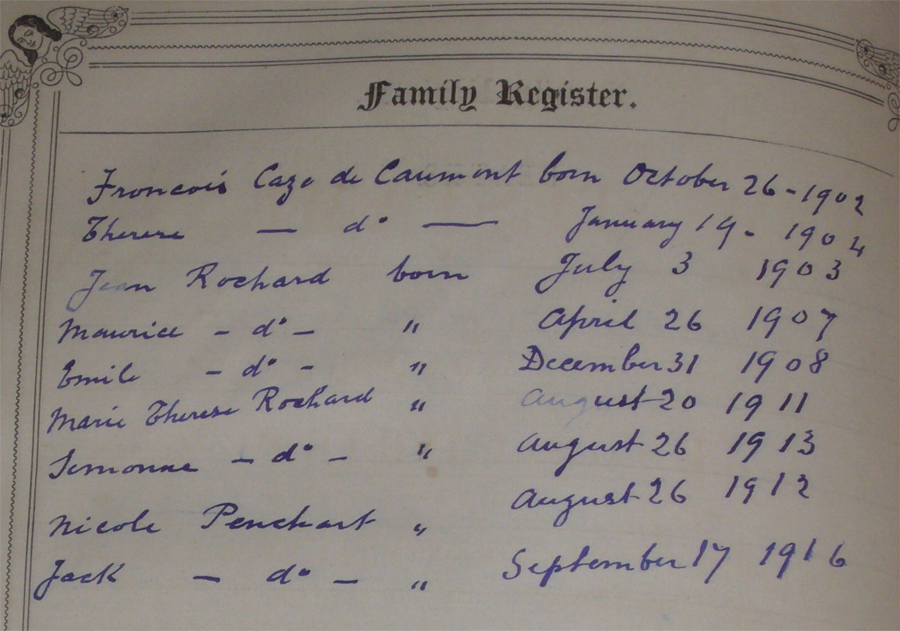 Family Register.
Froncois Caze de Caumont born October 26-1902
Therese — do — January 19 - 1904
Jean Rochard born July 3 1903
Maurice - do - " April 26 1907
Emile - do - " December 31 1908
Marie Therese Rochard " August 20 1911
Simonne - do - " August 26 1913
Nicole Penchart " August 26 1912
Jack - do - " September 17 1916